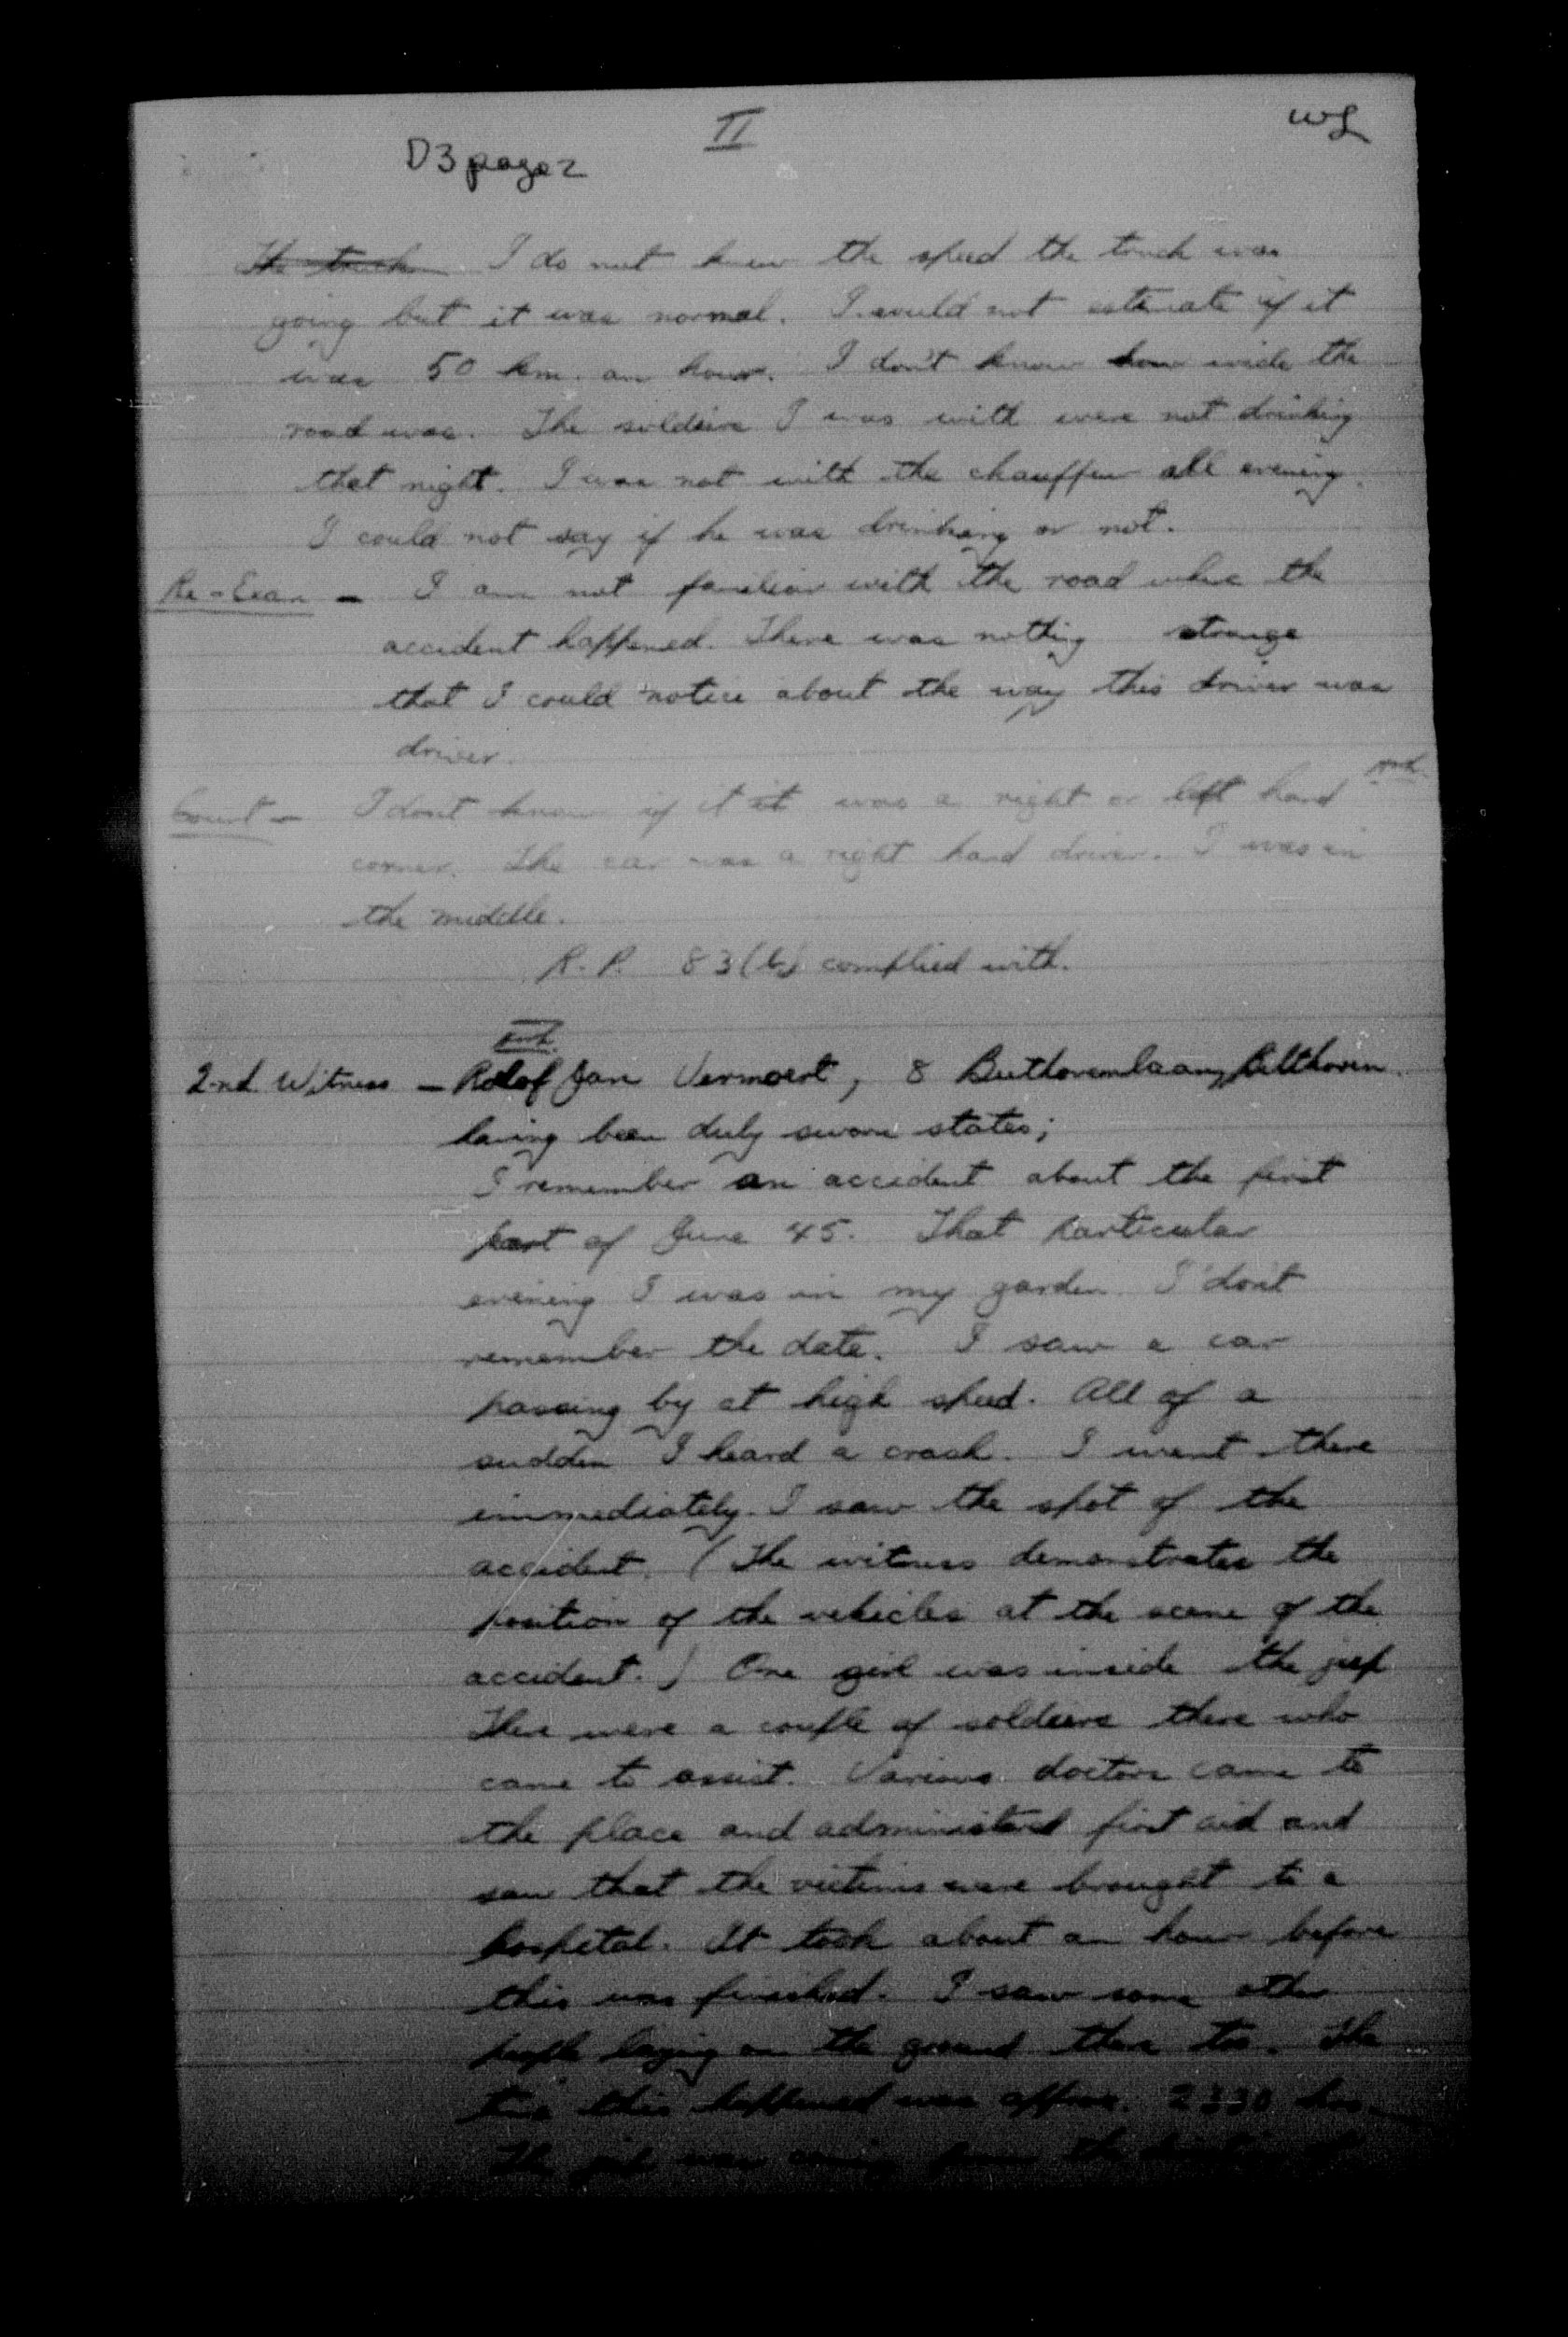 II
D3 page 2
~~The truck~~ I do not know the speed the truck was
going but it was normal. I could not estimate if it
was 50 km. an hour. I don't know how wide the
road was. The soldiers I was with were not drinking
that night. I was not with the chauffeur all evening.
I could not say if he was drinking or not.
Re-Exam - I am not familiar with the road where the
accident happened. There was nothing strange
that I could notice about the way this driver was
driver.
Court - I dont know if it was a right or left hand
corner. The car was a right hand driver. I was in
the middle.
R.P. 83(b) complied with.
2nd Witness - Rolof Jan Vermoert, 8 Beethovenlaan, Bilthoven
having been duly sworn states;
I remember an accident about the first
part of June 45. That particular
evening I was in my garden. I don't
remember the date. I saw a car
passing by at high speed. All of a
sudden I heard a crash. I went there
immediately. I saw the spot of the
accident. (The witness demonstrates the
position of the vehicles at the scene of the
accident.) One girl was inside the jeep
There were a couple of soldiers there who
came to assist. Various doctors came to
the place and administered first aid and
saw that the victims were brought to a
hospital. It took about an hour before
this was finished. I saw some other
people laying on the ground there too. The
time this happened was approx. 2330 hrs.
The jeep was coming from the direction of